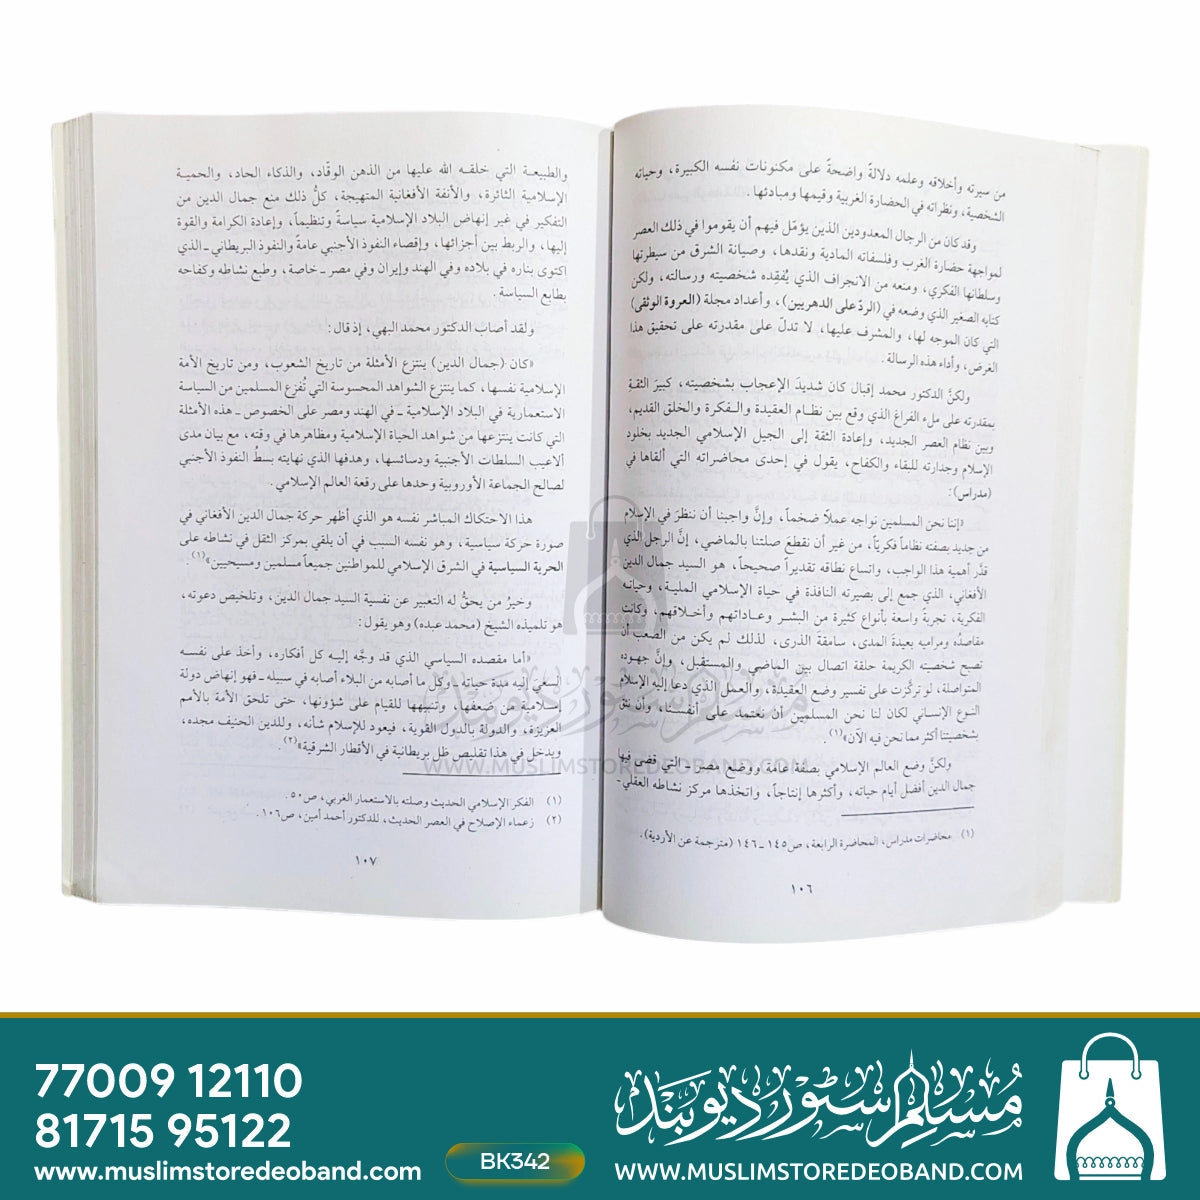 من سيرته وأخلاقه وعلمه دلالةً واضحةً على مكنونات نفسه الكبيرة، وحياته
الشخصية، ونظراته في الحضارة الغربية وقيمها ومبادئها.
وقد كان من الرجال المعدودين الذين يؤمّل فيهم أن يقوموا في ذلك العصر
لمواجهة حضارة الغرب وفلسفاته المادية ونقدها، وصيانة الشرق من سيطرتها
وسلطانها الفكري، ومنعه من الانجراف الذي يُفقِده شخصيته ورسالته، ولكن
كتابه الصغير الذي وضعه في (الردّ على الدهريين)، وأعداد مجلة (العروة الوثقى)
التي كان الموجه لها، والمشرف عليها، لا تدلّ على مقدرته على تحقيق هذا
الغرض، وأداء هذه الرسالة.
ولكنَّ الدكتور محمد إقبال كان شديدَ الإعجاب بشخصيته، كبيرَ الثقة
بمقدرته على ملء الفراغ الذي وقع بين نظام العقيدة والفكرة والخلق القديم،
وبين نظام العصر الجديد، وإعادة الثقة إلى الجيل الإسلامي الجديد بخلود
الإسلام وجدارته للبقاء والكفاح، يقول في إحدى محاضراته التي ألقاها في
(مدراس):
«إننا نحن المسلمين نواجه عملاً ضخماً، وإنَّ واجبنا أن ننظرَ في الإسلام
من جديد بصفته نظاماً فكريّاً، من غير أن نقطعَ صلتنا بالماضي، إنَّ الرجل الذي
قدَّر أهمية هذا الواجب، واتساع نطاقه تقديراً صحيحاً، هو السيد جمال الدين
الأفغاني، الذي جمع إلى بصيرته النافذة في حياة الإسلامي الملية، وحياته
الفكرية، تجربة واسعة بأنواع كثيرة من البشر وعاداتهم وأخلاقهم، وكانت
مقاصدُه ومراميه بعيدةَ المدى، سامقة الذرى، لذلك لم يكن من الصعب أن
تصبح شخصيته الكريمة حلقة اتصال بين الماضي والمستقبل، وإنَّ جهوده
المتواصلة، لو تركّزت على تفسير وضع العقيدة، والعمل الذي دعا إليه الإسلام
النوع الإنساني لكان لنا نحن المسلمين أن نعتمد على أنفسنا، وأن نثق
بشخصيتنا أكثر مما نحن فيه الآن»(١).
ولكنَّ وضع العالم الإسلامي بصفة عامة، ووضع مصر ـ التي قضى فيها
جمال الدين أفضل أيام حياته، وأكثرها إنتاجاً، واتخذها مركز نشاطه العقلي-
(١) محاضرات مدراس، المحاضرة الرابعة، ص١٤٥ ـ ١٤٦ (مترجمة عن الأردية).
١٠٦
والطبيعة التي خلقه الله عليها من الذهن الوقّاد، والذكاء الحاد، والحمية
الإسلامية الثائرة، والأنفة الأفغانية المتهيجة، كلُّ ذلك منع جمال الدين من
التفكير في غير إنهاض البلاد الإسلامية سياسةً وتنظيماً، وإعادة الكرامة والقوة
إليها، والربط بين أجزائها، وإقصاء النفوذ الأجنبي عامةً والنفوذ البريطاني ـ الذي
اكتوى بناره في بلاده وفي الهند وإيران وفي مصر ـ خاصة، وطبع نشاطه وكفاحه
بطابع السياسة.
ولقد أصاب الدكتور محمد البهي، إذ قال:
«كان (جمال الدين) ينتزع الأمثلة من تاريخ الشعوب، ومن تاريخ الأمة
الإسلامية نفسها، كما ينتزع الشواهد المحسوسة التي تُفزع المسلمين من السياسة
الاستعمارية في البلاد الإسلامية ـ في الهند ومصر على الخصوص ـ هذه الأمثلة
التي كانت ينتزعها من شواهد الحياة الإسلامية ومظاهرها في وقته، مع بيان مدى
ألاعيب السلطات الأجنبية ودسائسها، وهدفها الذي نهايته بسطُ النفوذ الأجنبي
لصالح الجماعة الأوروبية وحدها على رقعة العالم الإسلامي.
هذا الاحتكاك المباشر نفسه هو الذي أظهر حركة جمال الدين الأفغاني في
صورة حركة سياسية، وهو نفسه السبب في أن يلقي بمركز الثقل في نشاطه على
الحرية السياسية في الشرق الإسلامي للمواطنين جميعاً مسلمين ومسيحيين»(١).
وخيرُ من يحقُّ له التعبير عن نفسية السيد جمال الدين، وتلخيص دعوته،
هو تلميذه الشيخ (محمد عبده) وهو يقول:
«أما مقصده السياسي الذي قد وجَّه إليه كل أفكاره، وأخذ على نفسه
السعيَ إليه مدة حياته ـ وكل ما أصابه من البلاء أصابه في سبيله ـ فهو إنهاض دولة
إسلامية من ضعفها، وتنبيهها للقيام على شؤونها، حتى تلحق الأمة بالأمم
العزيزة، والدولة بالدول القوية، فيعود للإسلام شأنه، وللدين الحنيف مجده،
ويدخل في هذا تقليص ظل بريطانية في الأقطار الشرقية»(٢).
(١) الفكر الإسلامي الحديث وصلته بالاستعمار الغربي، ص٥٠.
(٢) زعماء الإصلاح في العصر الحديث، للدكتور أحمد أمين، ص١٠٦.
١٠٧
مسلم سٹور دیوبند
WWW.MUSLIMSTOREDEOBAND.COM
77009 12110
81715 95122
www.muslimstoredeoband.com
BK342
مُسلم سٹور دیوبند
WWW.MUSLIMSTOREDEOBAND.COM